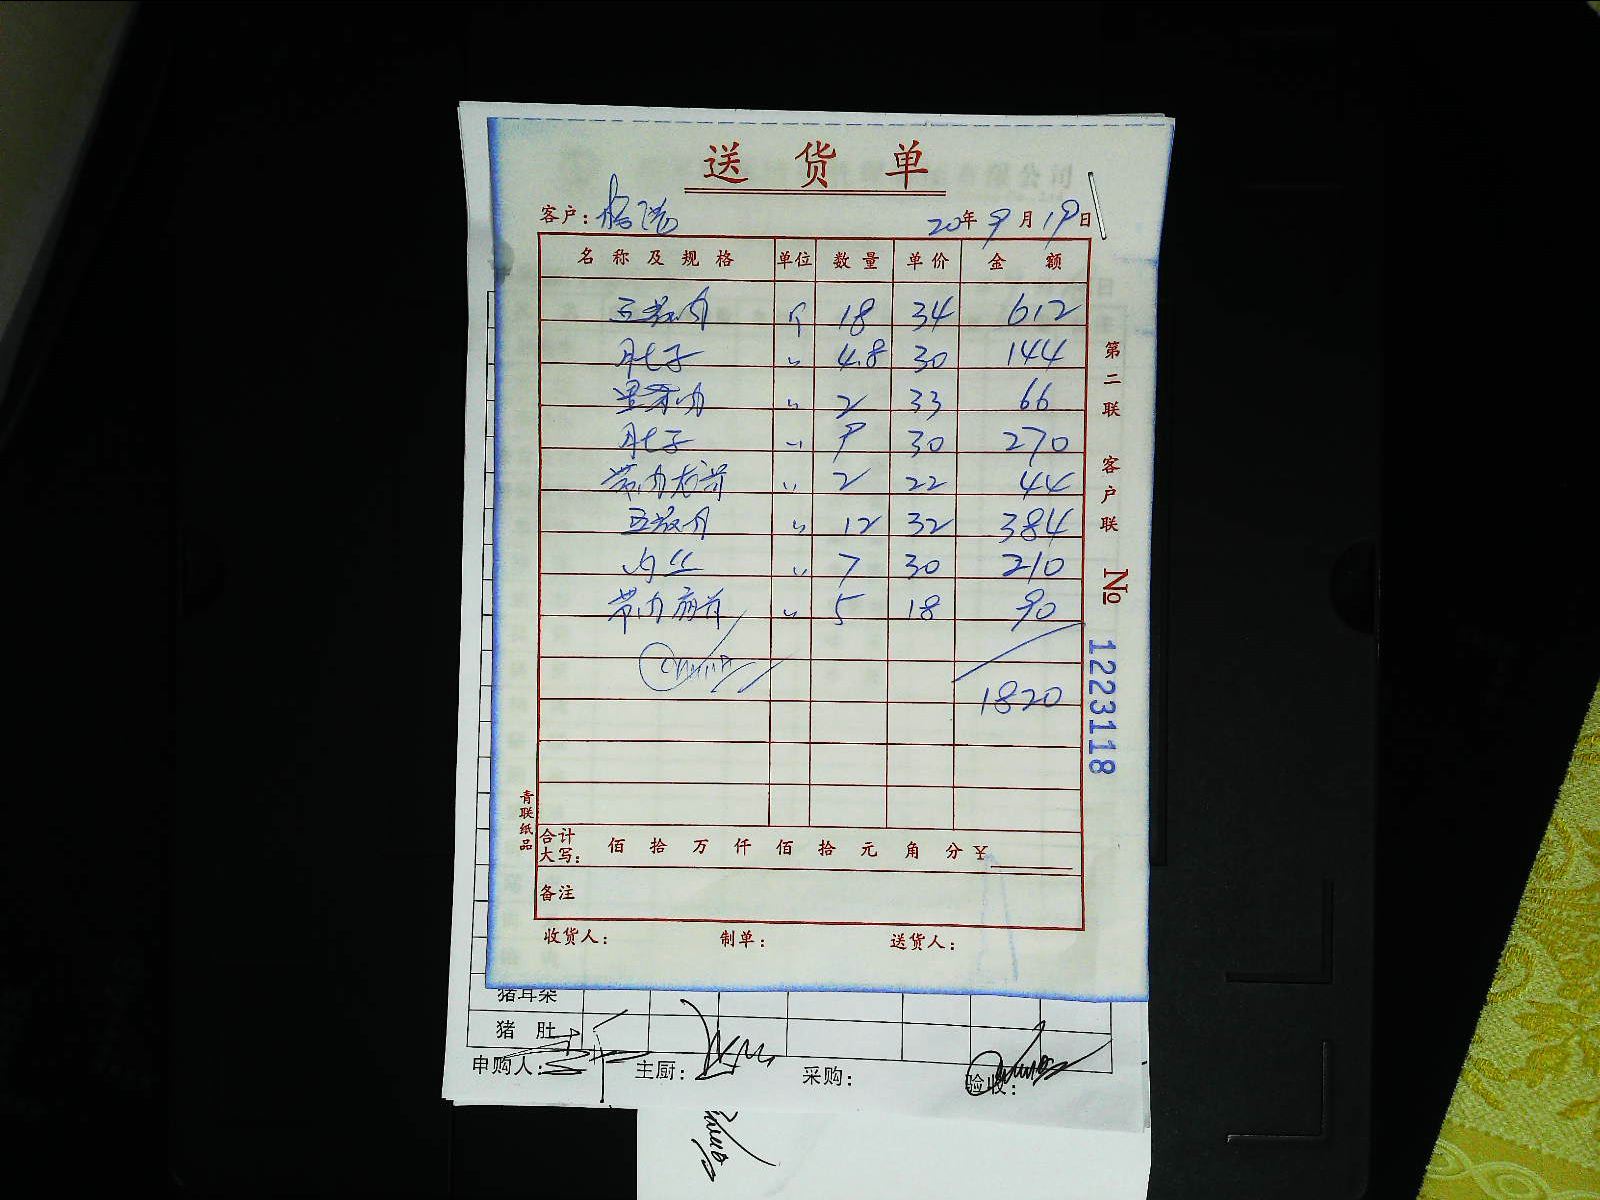 送货单
客户:
20年9月19日
名称及规格 单位 数量 单价 金额
五花肉 斤 18 34 612
肚子 〃 4.8 30 144
里脊肉 〃 2 33 66
肚子 〃 9 30 270
带肉龙骨 〃 2 22 44
五花肉 〃 12 32 384
肉丝 〃 7 30 210
带肉扇骨 〃 5 18 90
1820
合计大写: 佰 拾 万 仟 佰 拾 元 角 分 ¥
备注
收货人: 制单: 送货人:
第二联 客户联 № 1223118
青联纸品
猪耳朵
猪肚
申购人: 主厨: 采购: 验收: